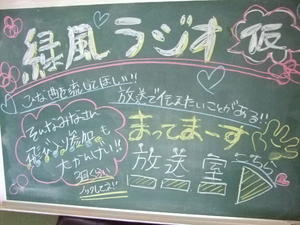 緑風ラジオ 仮
こんな曲を流してほしい!!
放送で伝えたいことがある!!
そんなみなさん
参加も
大かんげい!!
3回くらい
ノックしてネ!!
まってまーす
放送室
こちら